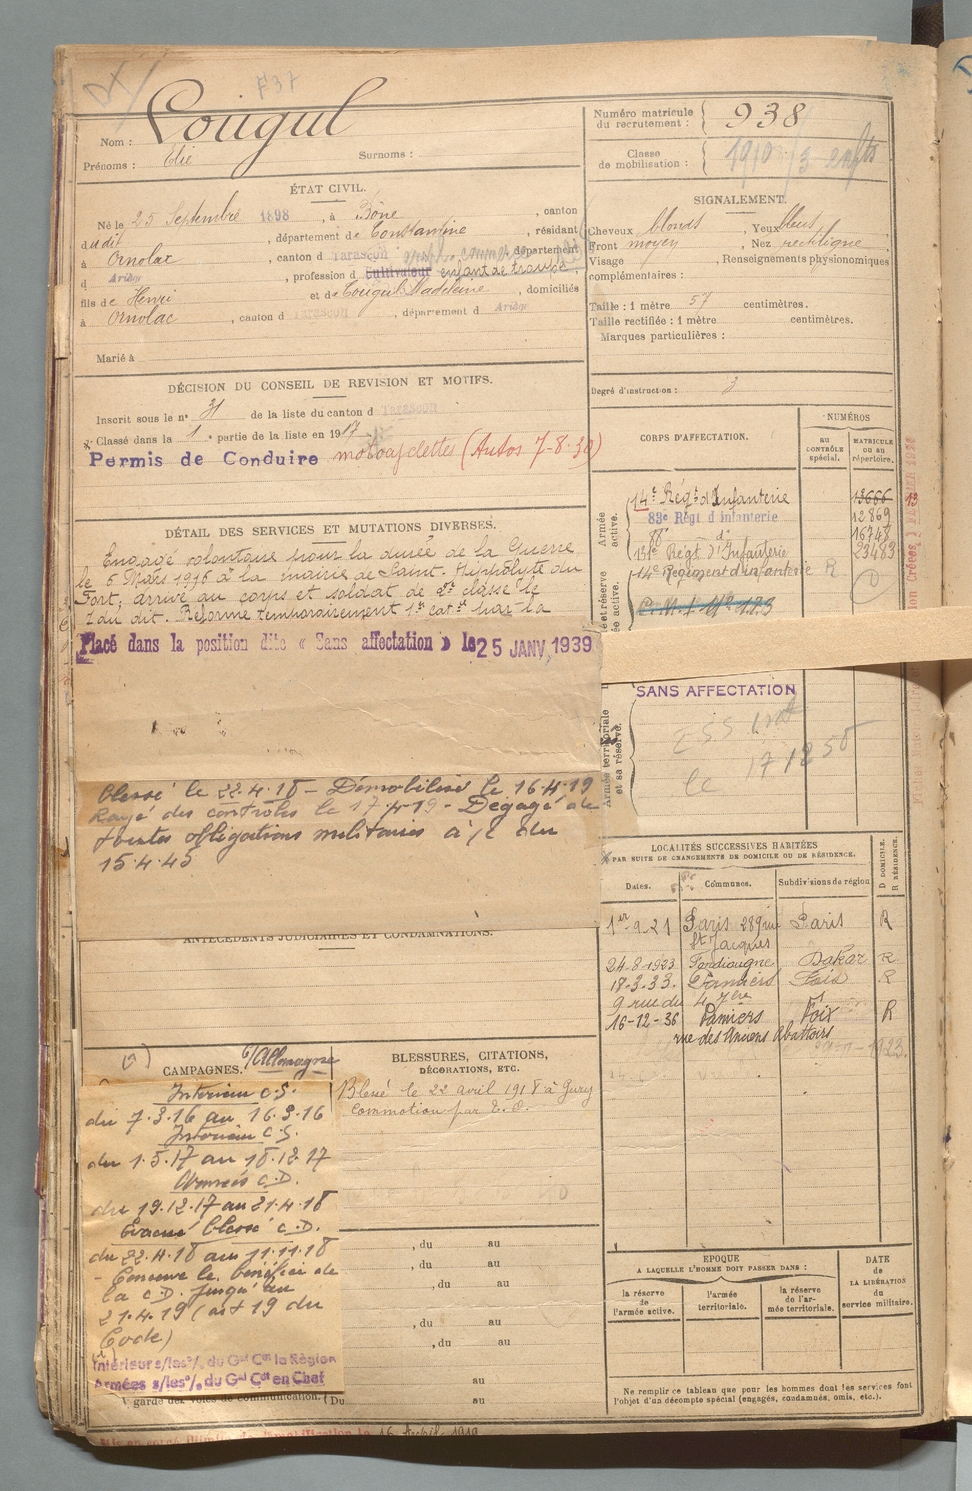 F37
Nom :
Prénoms : Elie Surnoms :
Numéro matricule
du recrutement : 938
Classe
de mobilisation : 1910 3 enfts
ÉTAT CIVIL.
Né le 25 Septembre 1898, à Bône, canton
dudit, département de Constantine, résidant
à Ornolac, canton d Tarascon, département
d Ariège, profession d Cultivateur
fils de Henri et de Madeleine, domiciliés
à Ornolac, canton d Tarascon, département d Ariège
Marié à
SIGNALEMENT.
Cheveux blonds, Yeux bleus
Front moyen, Nez rectiligne
Visage, Renseignements physionomiques
complémentaires :
Taille : 1 mètre 57 centimètres.
Taille rectifiée : 1 mètre centimètres.
Marques particulières :
Degré d'instruction : 3
DÉCISION DU CONSEIL DE REVISION ET MOTIFS.
Inscrit sous le n° 31 de la liste du canton d Tarascon
Classé dans la 1e partie de la liste en 1917
Permis de Conduire motocyclettes (Autos 7-8-30)
DÉTAIL DES SERVICES ET MUTATIONS DIVERSES.
Engagé volontaire pour la durée de la Guerre
le 6 Mars 1916 à la mairie de Saint-Hippolyte du
Fort, arrivé au corps et soldat de 2e classe le
7 du dit. Réformé temporairement 1e cat. par la
Placé dans la position dite « Sans affectation » le 25 JANV 1939
Blessé le 22.4.18 - Démobilisé le 16.4.19
Rayé des contrôles le 17.4.19 - Dégagé de
toutes obligations militaires à/c du
15.4.45
CORPS D'AFFECTATION.
NUMÉROS
au
CONTRÔLE
spécial.
MATRICULE
ou au
répertoire.
Armée
active.
14e Régt d'Infanterie 13666
83e Régt d infanterie 12869
88 d° 16748
131e Régt d'Infanterie 23483
14e Régiment d'infanterie R
C.M.I. N° 173
SANS AFFECTATION
Armée territoriale
et sa réserve.
le 17 12 58
LOCALITÉS SUCCESSIVES HABITÉES
PAR SUITE DE CHANGEMENTS DE DOMICILE OU DE RÉSIDENCE.
Dates. Communes. Subdivisions de région. D DOMICILE. R RÉSIDENCE.
1er-9-21 Paris 289 rue St Jacques Paris R
24-8-1923 Dakar R
18-3-33 Pamiers Foix R
9 rue du
16-12-36 Pamiers Foix R
rue des Anciens Abattoirs
ANTÉCÉDENTS JUDICIAIRES ET CONDAMNATIONS.
CAMPAGNES. c/Allemagne
Intérieur C.S.
du 7.3.16 au 16.3.16
Intérieur C.S.
du 1.5.17 au 18.12.17
Armées C.D.
du 19.12.17 au 21.4.18
Evacué blessé C.D.
du 22.4.18 au 11.11.18
- Conserve le bénéfice de
la C.D. jusqu'au
21.4.19 (art 19 du
Code)
Intérieur s/les o/ du Gal Ct la Région
Armées s/les o/ du Gal Ct en Chef
garde des voies de communication. (Du
BLESSURES, CITATIONS,
DÉCORATIONS, ETC.
Blessé le 22 avril 1918 à
commotion par E.O.
, du au
, du au
, du au
, du au
, du au
au
au
EPOQUE
A LAQUELLE L'HOMME DOIT PASSER DANS :
la réserve
de
l'armée active.
l'armée
territoriale.
la réserve
de l'ar-
mée territoriale.
DATE
de
LA LIBÉRATION
du
service militaire.
Ne remplir ce tableau que pour les hommes dont les services font
l'objet d'un décompte spécial (engagés, condamnés, omis, etc.).